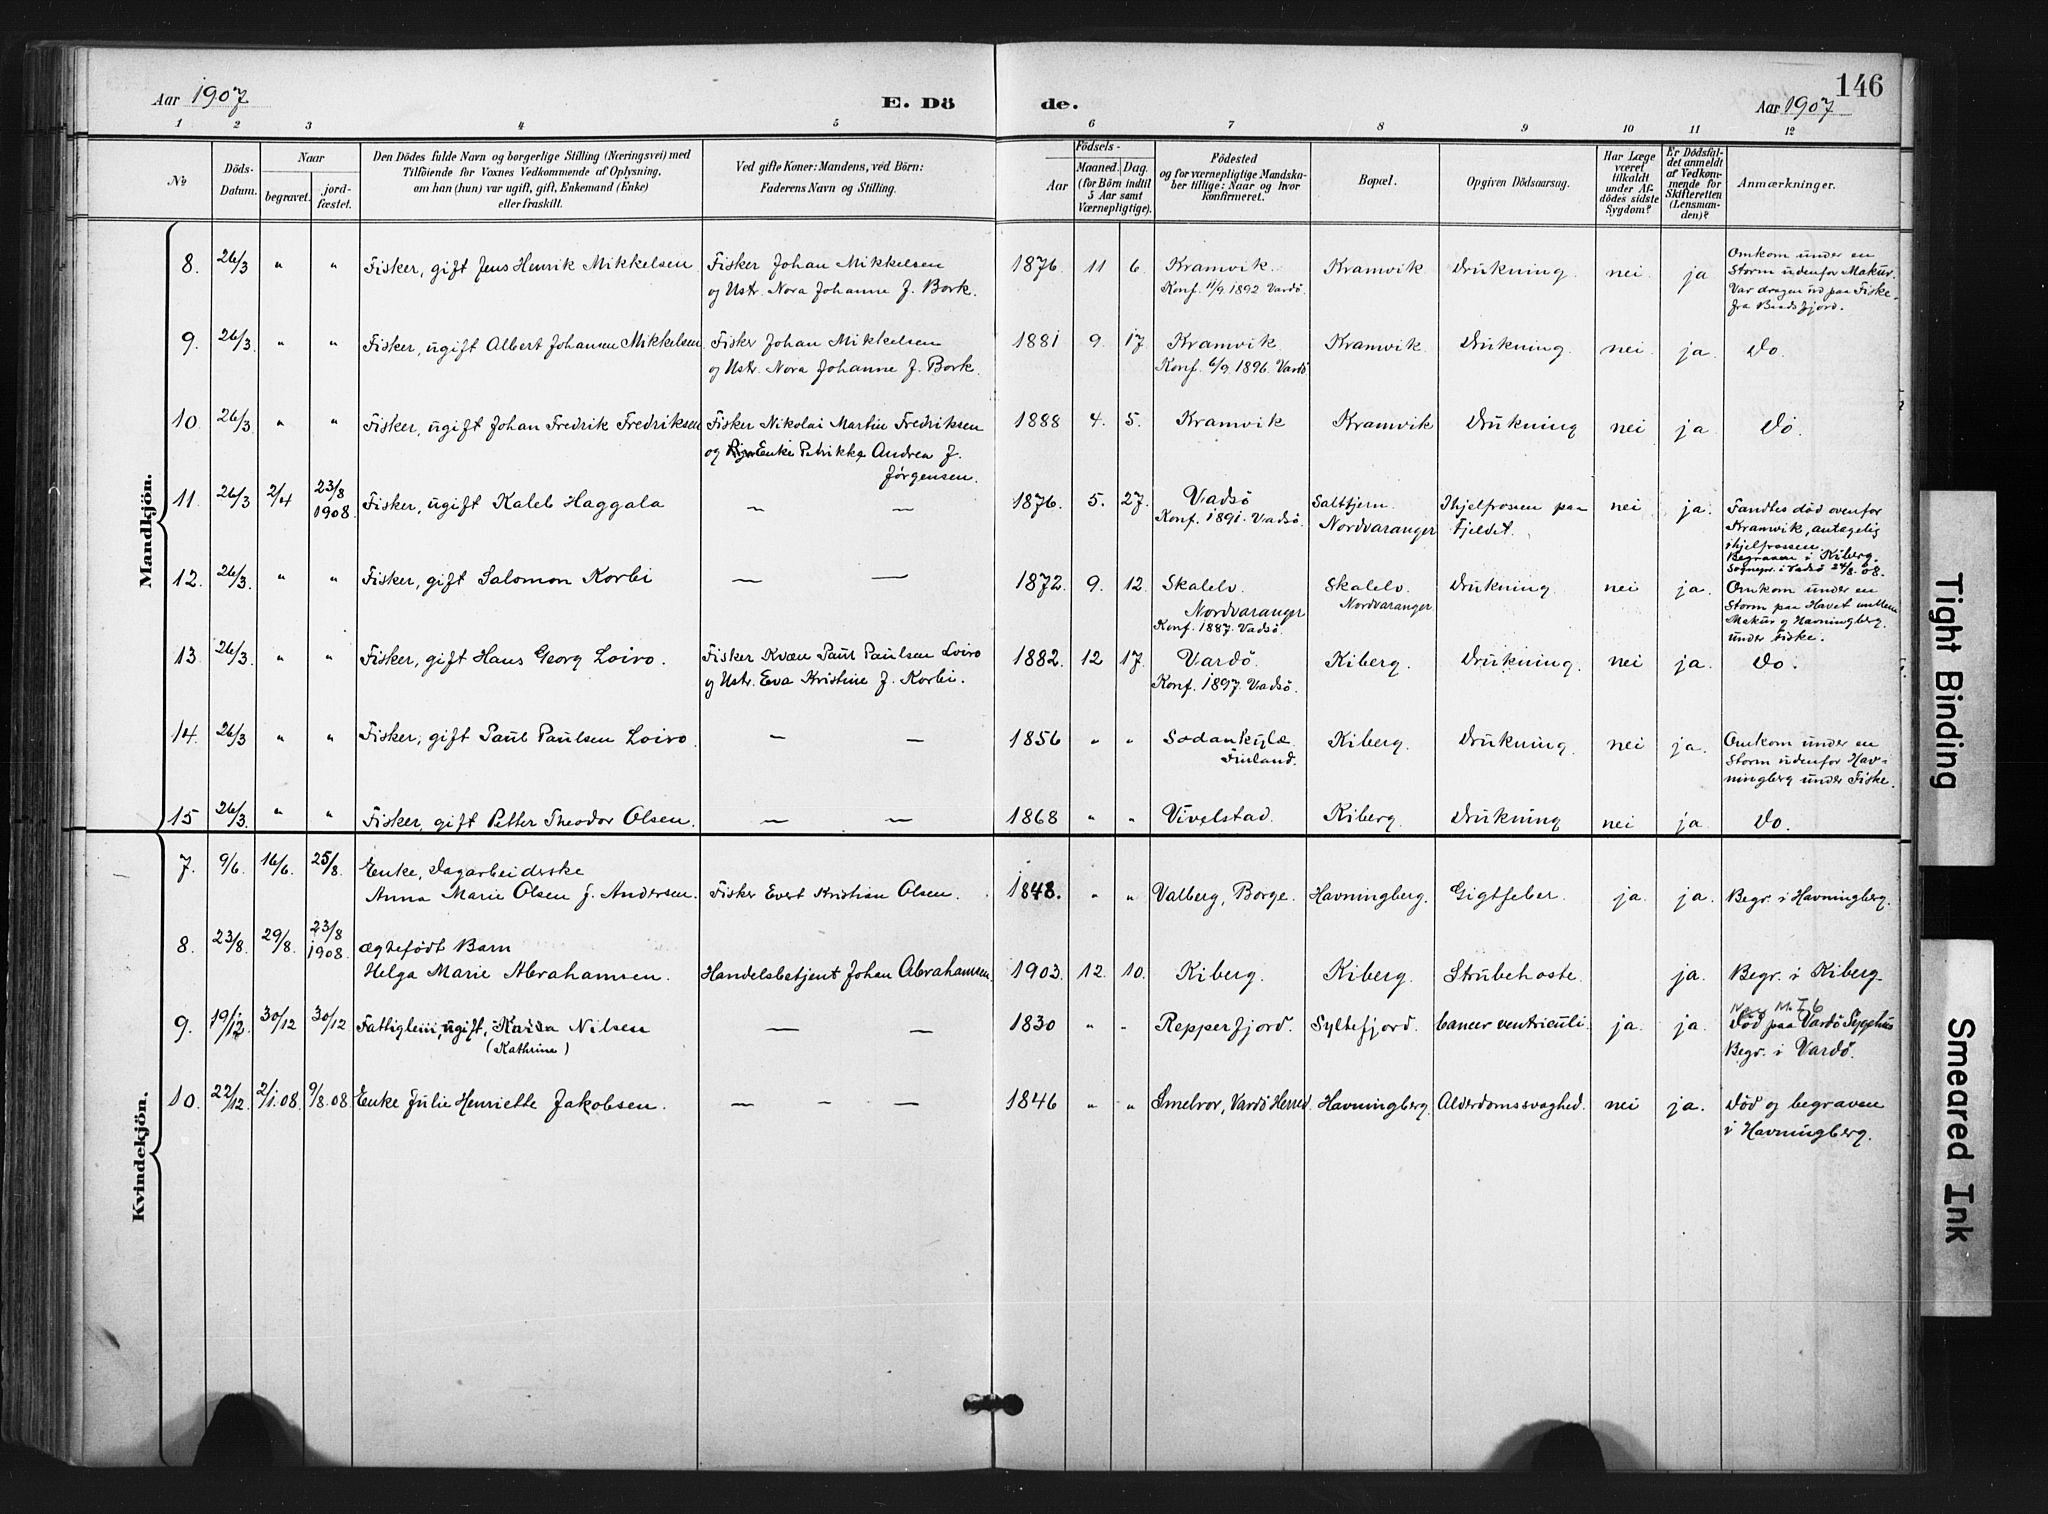 146
Aar 1907
E. Dö
de.
Aar 1907
1 2 3 4 5 6 7 8 9 10 11 12
№
Döds-
Datum.
Naar
begravet.
jord-
fæstet.
Den Dödes fulde Navn og borgerlige Stilling (Næringsvei) med
Tilföiende for Voxnes Vedkommende af Oplysning,
om han (hun) var ugift, gift, Enkemand (Enke)
eller fraskilt.
Ved gifte Koner: Mandens, ved Börn:
Faderens Navn og Stilling.
Födsels-
Aar
Maaned.
Dag.
(for Börn indtil
5 Aar samt
Værnepligtige).
Födested
og for værnepligtige Mandska-
ber tillige: Naar og hvor
konfirmeret.
Bopæl.
Opgiven Dödsaarsag.
Har Læge
været
tilkaldt
under Af-
dödes sidste
Sygdom?
Er Dödsfal-
det anmeldt
af Vedkom-
mende for
Skifteretten
(Lensman-
den)?
Anmærkninger.
Mandkjön.
8. 26/3 " " Fisker, gift Jens Henrik Mikkelsen
Fisker Johan Mikkelsen
og Ustr. Nora Johanne f. Bork.
1876. 11 6. Kramvik.
Konf. 11/9 1892 Vardø.
Kramvik Drukning. nei. ja
Omkom under en
Storm udenfor Makur.
Var dragen ud paa Fiske
fra Baadsfjord.
9. 26/3. " " Fisker, ugift Albert Johansen Mikkelsen.
Fisker Johan Mikkelsen
og Ustr. Nora Johanne f. Bork.
1881 9. 17. Kramvik.
Konf. 6/9 1896. Vardø
Kramvik. Drukning. nei. ja. Do.
10 26/3. " " Fisker, ugift Johan Fredrik Fredriksen
Fisker Nikolai Martin Fredriksen
og Enke Petrikke Andrea f.
Jørgensen.
1888 4. 5. Kramvik Kramvik Drukning nei ja. Do.
11. 26/3 2/4 23/8
1908. Fisker, ugift Kaleb Haggala
— —
1876. 5. 27. Vadsø
Konf. 1891. Vadsø.
Saltbjern.
Nordvaranger
Ihjelfrosen paa
Fjeldet.
nei ja.
Fandtes død ovenfor
Kramvik, antagelig
ihjelfrossen.
Begraven i Kiberg.
Sogнepr. i Vadsø 24/8. 08.
12. 26/3 " " Fisker, gift Salomon Korbi
— —
1872. 9. 12. Skalelv.
Nordvaranger
Konf. 1887. Vadsø.
Skalelv
Nordvaranger
Drukning. nei ja.
Omkom under en
Storm paa Havet mellem
Makur og Havningberg.
under Fiske.
13. 26/3. " " Fisker, gift Hans Georg Loivo.
Fisker Kvæn Paul Paulsen Loivo
og Ustr. Eva Kristine f. Korbi.
1882. 12 17. Vardø.
Konf. 1897. Vadsø.
Kiberg. Drukning. nei ja. Do.
14. 26/3. " " Fisker, gift Paul Paulsen Loivo.
— —
1856 " " Sodankylæ
Finland.
Kiberg. Drukning. nei ja.
Omkom under en
Storm udenfor Hav-
ningberg under Fiske.
15 26/3. " " Fisker, gift Petter Theodor Olsen.
— —
1868 " " Vivelstad. Kiberg. Drukning nei ja. Do.
Kvindekjön.
7. 9/6. 16/6. 25/8. Enke, Dagarbeiderske
Anna Marie Olsen f. Andersen.
Fisker Evert Kristian Olsen.
1848. " " Valberg, Borge. Havningberg. Gigtfeber. ja. ja. Begr. i Havningberg.
8. 23/8. 29/8. 23/8
1908. Ægtefødt Barn
Helga Marie Abrahamsen.
Handelsbetjent Johan Abrahamsen
1903. 12. 10. Kiberg. Kiberg. Strubehoste. ja. Begr. i Kiberg.
9. 19/12. 30/12 30/12 Fattiglem, ugift, Kaisa Nilsen
(Kathrine)
— —
1830 " " Repperfjord. Syltefjord. Cancer ventriculi. ja. ja.
Død paa Vardø Sygehus
Begr. i Vardø.
10. 22/12. 2/1.08. 9/8.08. Enke Julie Henriette Jakobsen.
— — —
1846 " " Smelror, Vardø Herred. Havningberg. Alderdomssvaghed. nei ja.
Død og begraven
i Havningberg.
Tight Binding
Smeared Ink